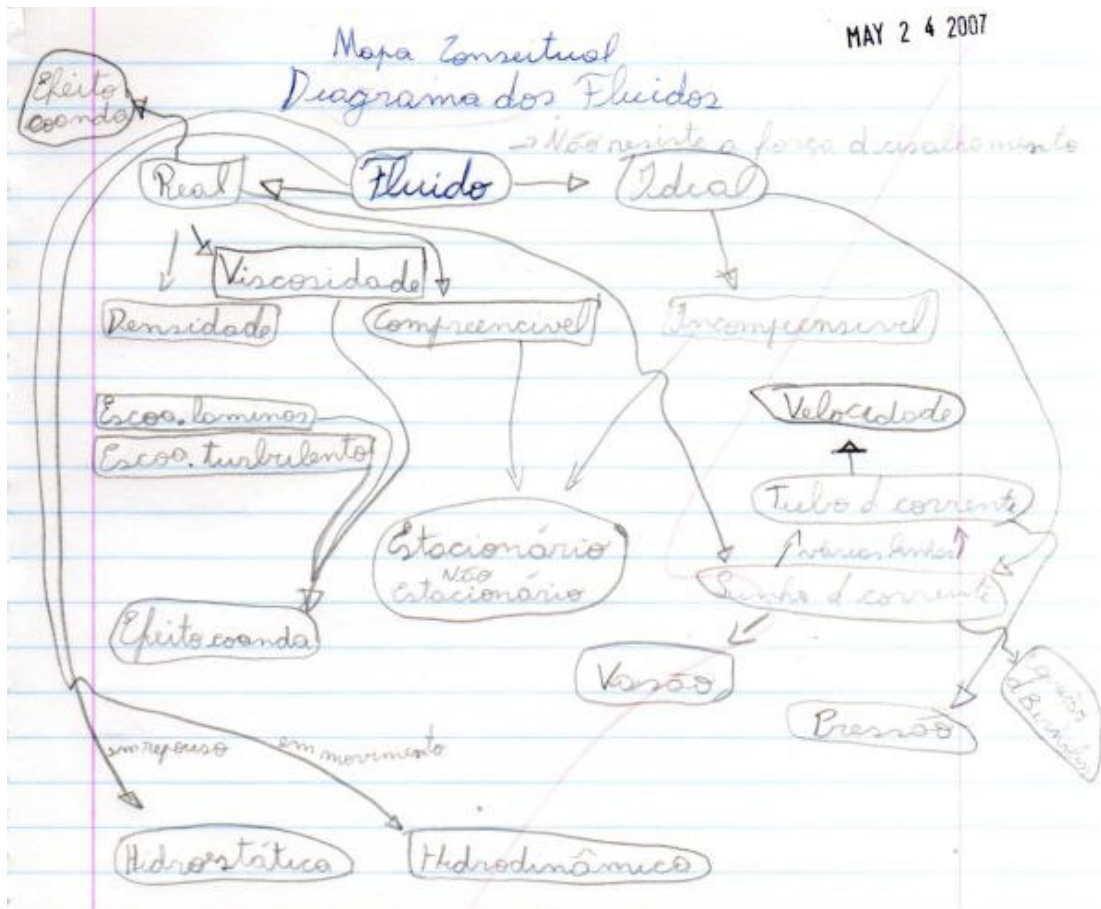 MAY 2 4 2007
Mapa Conseitual
Diagrama dos Fluidos
Efeito
coanda
→ Não resiste a força d cisalhamento
Real
Fluido
Ideal
Viscosidade
Densidade
Compreencivel
Incompreensivel
Escoo. laminos
Escoo. turbulento
Velocidade
Tubo d corrente
várias linhas
Estacionário
Não
Estacionário
d corrente
Efeito coanda
Vasão
Pressão
Equação
d Bernoles
em repouso
em movimento
Hidrostática
Hidrodinâmica